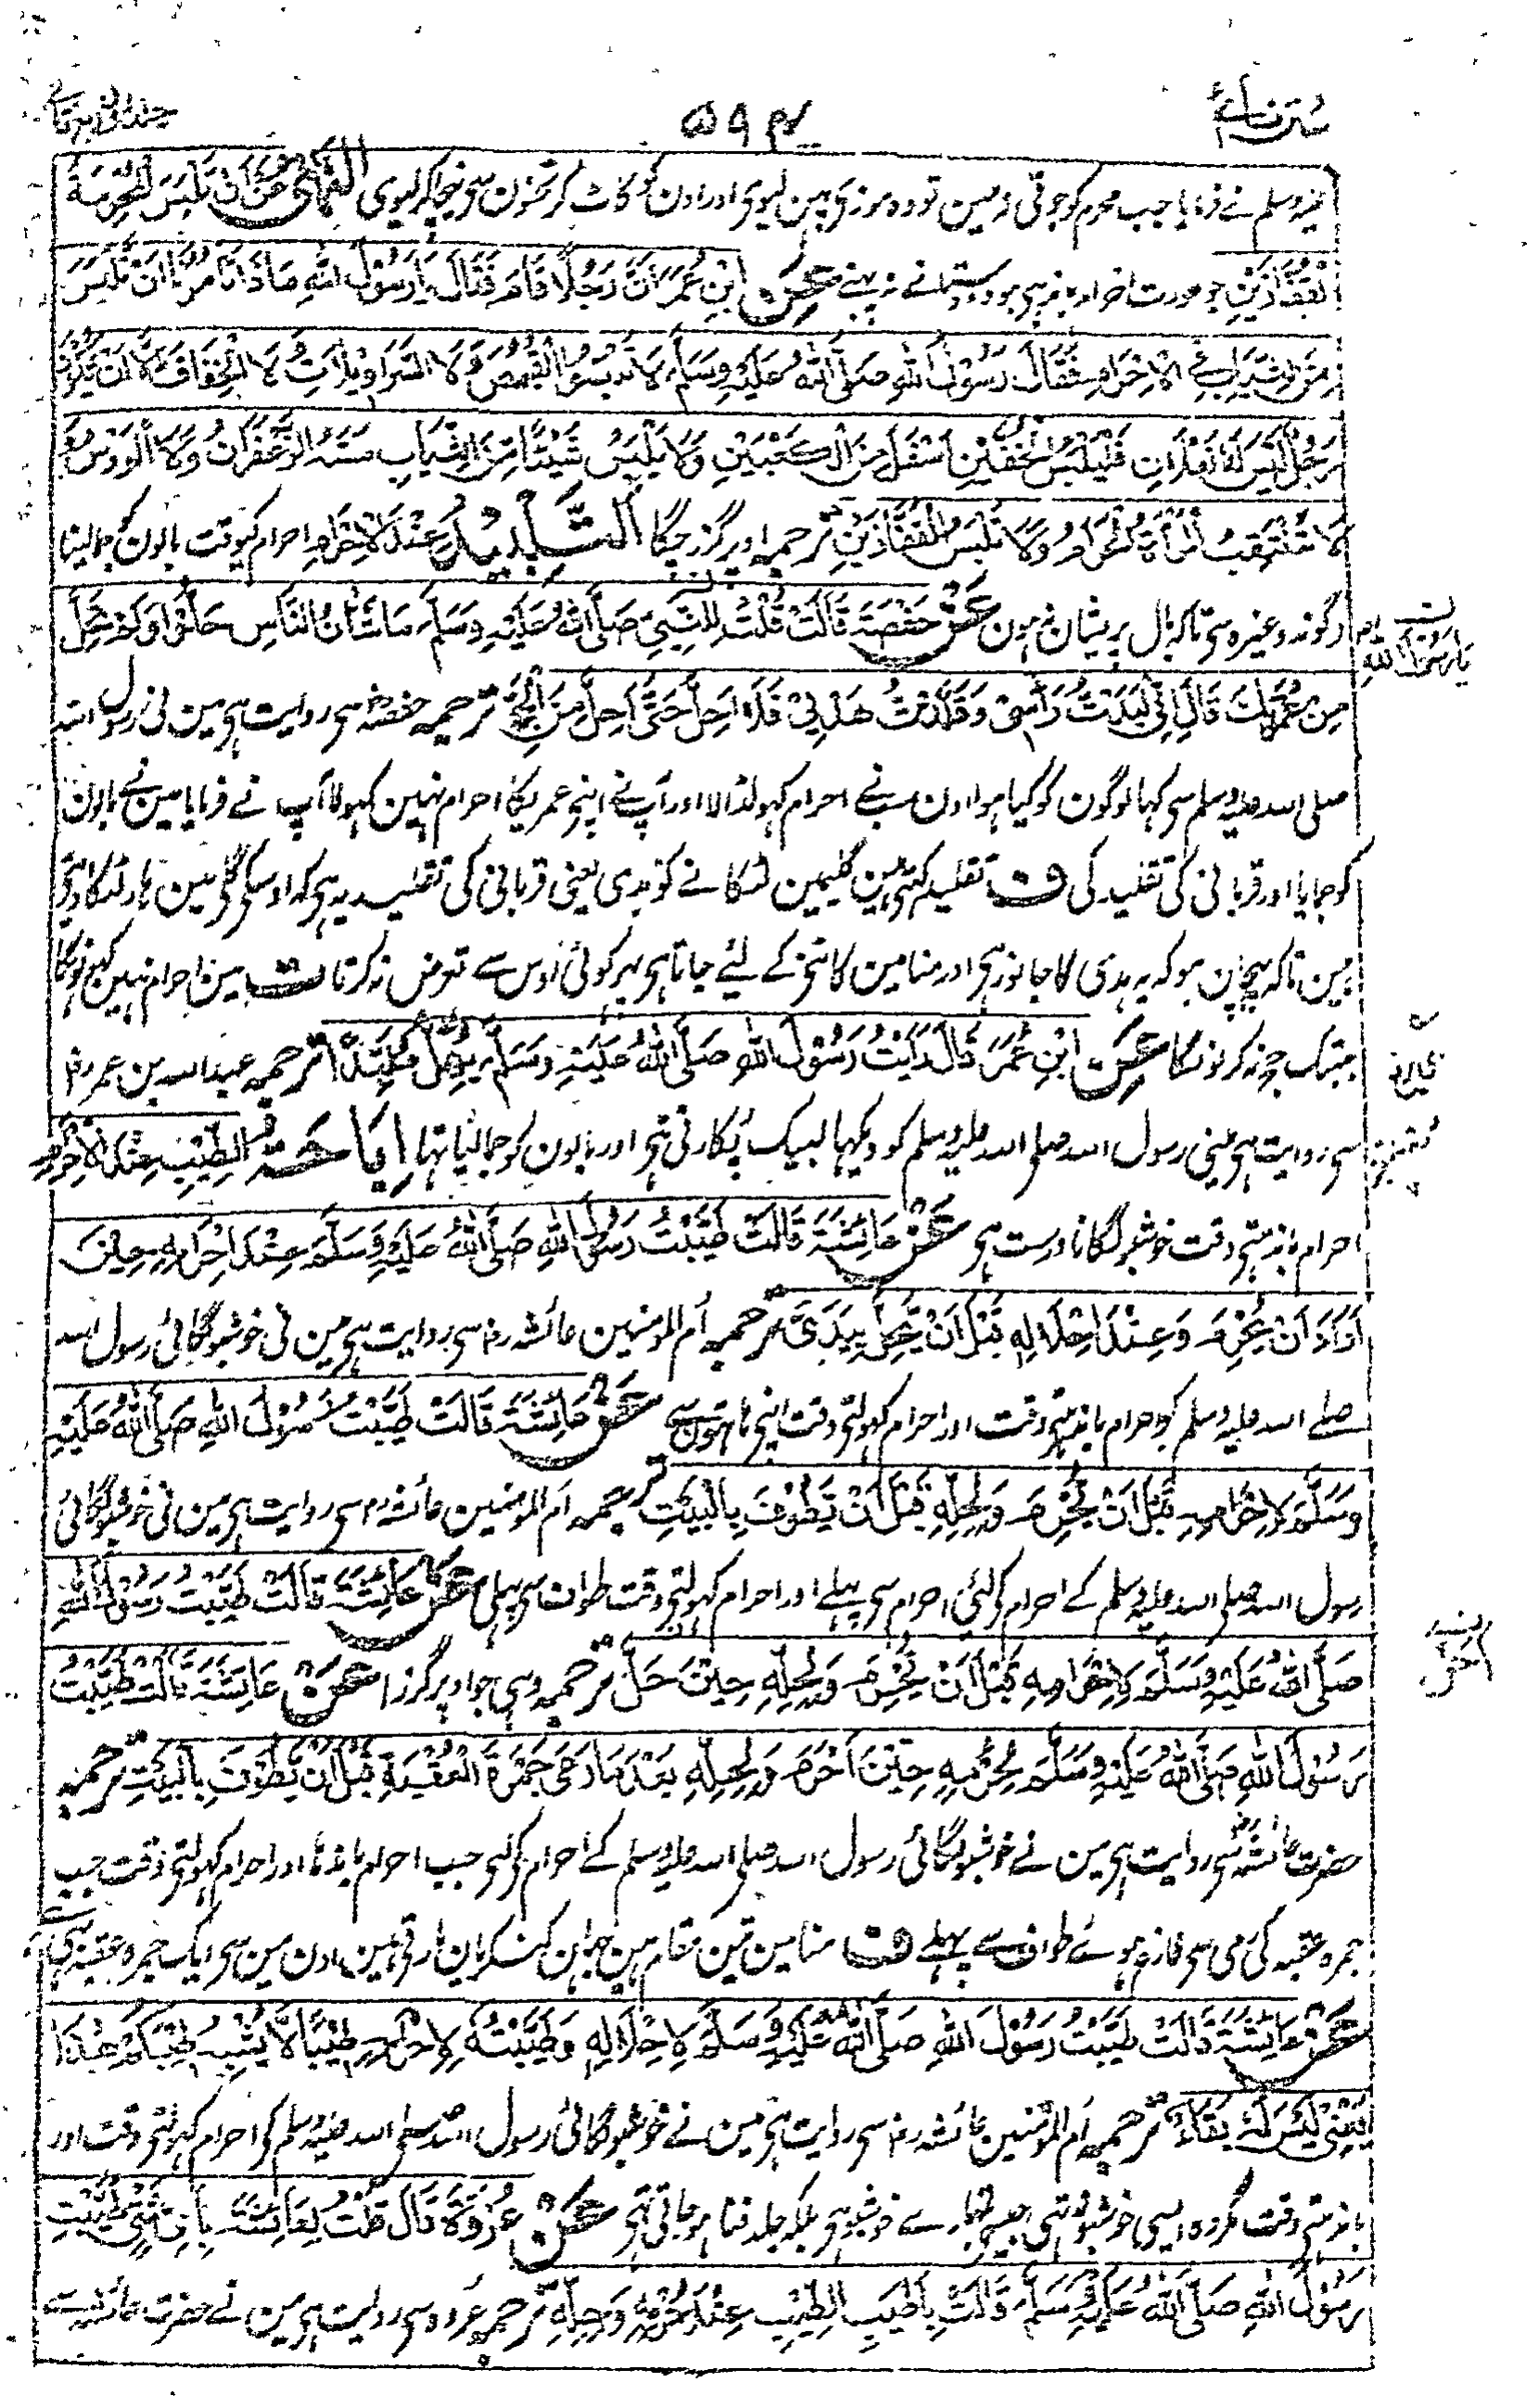 سنن نسائی
۵۹۴
علیہ وسلم نے فرمایا جب محرم کو جوتی نہ ملین تو وہ موزی پہن لیوی اور اون کو کاٹ کر ٹخنون سی نیچا کر لیوی النھی عن ان تلبس المحرمۃ
القفازین جو عورت احرام باندہی ہو وہ دستانے نہ پہنے عَنِ ابْنِ عُمَرَ اَنَّ رَجُلًا قَامَ فَقَالَ یَا رَسُوْلَ اللّٰہِ مَاذَا تَاْمُرُنَا اَنْ نَلْبَسَ
مِنَ الثِّیَابِ فِی الْاِحْرَامِ فَقَالَ رَسُوْلُ اللّٰہِ صَلَّی اللّٰہُ عَلَیْہِ وَسَلَّمَ لَا تَلْبَسُوا الْقُمُصَ وَلَا السَّرَاوِیْلَاتِ وَلَا الْخِفَافَ اِلَّا اَنْ یَّکُوْنَ
رَجُلٌ لَیْسَ لَہٗ نَعْلَانِ فَلْیَلْبَسِ الْخُفَّیْنِ اَسْفَلَ مِنَ الْکَعْبَیْنِ وَلَا یَلْبَسُ شَیْئًا مِّنَ الثِّیَابِ مَسَّہُ الزَّعْفَرَانُ وَلَا الْوَرْسُ وَ
لَا تَنْتَقِبُ الْمَرْاَۃُ الْحَرَامُ وَلَا تَلْبَسُ الْقُفَّازَیْنِ ترجمہ اوپر گزر چکا اَلتَّلْبِیْدُ عِنْدَ الْاِحْرَامِ احرام کیوقت بالون کو جمالینا
گوند وغیرہ سی تاکہ بال پریشان نہ ہون عَنْ حَفْصَۃَ قَالَتْ قُلْتُ لِلنَّبِیِّ صَلَّی اللّٰہُ عَلَیْہِ وَسَلَّمَ مَا شَاْنُ النَّاسِ حَلُّوْا وَلَمْ تَحِلَّ
یا رسول اللہ
مِنْ عُمْرَتِکَ قَالَ اِنِّیْ لَبَّدْتُّ رَاْسِیْ وَقَلَّدْتُّ ھَدْیِیْ فَلَا اَحِلُّ حَتّٰی اَحِلَّ مِنَ الْحَجِّ ترجمہ حفصہ سی روایت ہی مین نی رسول اللہ
صلی اللہ علیہ وسلم سی کہا لوگون کو کیا ہوا اون سبنے احرام کہولڈالا اور آپنے اپنے عمریکا احرام نہین کہولا آپ نے فرمایا مین نے بالون
کو جمایا اور قربانی کی تقلید کی ف تقلید کہتے ہین گلیمین لٹکانے کو ہدی یعنی قربانی کی تقلید یہ ہی کہ اوسکی گلی مین ہار لٹکا دیتی
ہین تاکہ پہچان ہو کہ یہ ہدی کا جانور ہی اور منا مین کاٹنے کے لئے جاتا ہی پہر کوئی اوس سے تعرض نہ کرتا ت مین احرام نہین کہولونگا
جبتک حج نہ کر لونگا عَنِ ابْنِ عُمَرَ قَالَ رَاَیْتُ رَسُوْلَ اللّٰہِ صَلَّی اللّٰہُ عَلَیْہِ وَسَلَّمَ یُھِلُّ مُلَبِّدًا ترجمہ عبداللہ بن عمر رض
سی روایت ہی مینی رسول اللہ صلی اللہ علیہ وسلم کو دیکہا لبیک پکارتی تہی اور بالون کو جمالیا تہا اِبَاحَۃُ الطِّیْبِ عِنْدَ الْاِحْرَامِ
احرام باندہتی وقت خوشبو لگانا درست ہی عَنْ عَائِشَۃَ قَالَتْ طَیَّبْتُ رَسُوْلَ اللّٰہِ صَلَّی اللّٰہُ عَلَیْہِ وَسَلَّمَ عِنْدَ اِحْرَامِہٖ حِیْنَ
اَرَادَ اَنْ یُّحْرِمَ وَعِنْدَ اِحْلَالِہٖ قَبْلَ اَنْ یُّحِلَّ بِیَدَیَّ ترجمہ اُم المومنین عائشہ رض سی روایت ہی مین نی خوشبو لگائی رسول اللہ
صلے اللہ علیہ وسلم کو احرام باندہتی وقت اور احرام کہولتی وقت اپنی ہاتہون سی عَنْ عَائِشَۃَ قَالَتْ طَیَّبْتُ رَسُوْلَ اللّٰہِ صَلَّی اللّٰہُ عَلَیْہِ
وَسَلَّمَ لِاِحْرَامِہٖ قَبْلَ اَنْ یُّحْرِمَ وَلِحِلِّہٖ قَبْلَ اَنْ یَّطُوْفَ بِالْبَیْتِ ترجمہ ام المومنین عائشہ رض سی روایت ہی مین نی خوشبو لگائی
رسول اللہ صلی اللہ علیہ وسلم کے احرام کی لئی احرام سی پہلے اور احرام کہولتی وقت طواف سی پہلی عَنْ عَائِشَۃَ قَالَتْ طَیَّبْتُ رَسُوْلَ اللّٰہِ
صَلَّی اللّٰہُ عَلَیْہِ وَسَلَّمَ لِاِحْرَامِہٖ قَبْلَ اَنْ یُّحْرِمَ وَلِحِلِّہٖ حِیْنَ حَلَّ ترجمہ وہی جو اوپر گزرا عَنْ عَائِشَۃَ قَالَتْ طَیَّبْتُ
رَسُوْلَ اللّٰہِ صَلَّی اللّٰہُ عَلَیْہِ وَسَلَّمَ لِحُرْمِہٖ حِیْنَ اَحْرَمَ وَلِحِلِّہٖ بَعْدَ مَا رَمٰی جَمْرَۃَ الْعَقَبَۃِ قَبْلَ اَنْ یَّطُوْفَ بِالْبَیْتِ ترجمہ
حضرت عائشہ رض سی روایت ہی مین نے خوشبو لگائی رسول اللہ صلی اللہ علیہ وسلم کے احرام کی لئی جب احرام باندہا اور احرام کہولتی وقت جب
جمرہ عقبہ کی رمی سی فارغ ہوئے طواف سے پہلے ف منا مین تین مقام ہین جہان کنکریان مارتی ہین اون مین سی ایک جمرہ عقبہ ہی
عَنْ عَائِشَۃَ قَالَتْ طَیَّبْتُ رَسُوْلَ اللّٰہِ صَلَّی اللّٰہُ عَلَیْہِ وَسَلَّمَ لِاِحْلَالِہٖ وَطَیَّبْتُہٗ لِاِحْرَامِہٖ طِیْبًا لَّا یُشْبِہُ طِیْبَکُمْ ھٰذَا
یَعْنِیْ لَیْسَ لَہٗ بَقَاءٌ ترجمہ ام المومنین عائشہ رض سی روایت ہی مین نے خوشبو لگائی رسول اللہ صلی اللہ علیہ وسلم کی احرام کہولتی وقت اور
باندہتی وقت مگر وہ ایسی خوشبو نہ تہی جیسی تمہارے خوشبو ہی بلکہ جلد فنا ہو جاتی تہی عَنْ عُرْوَۃَ قَالَ قُلْتُ لِعَائِشَۃَ بِاَیِّ شَیْءٍ طَیَّبْتِ
رَسُوْلَ اللّٰہِ صَلَّی اللّٰہُ عَلَیْہِ وَسَلَّمَ قَالَتْ بِاَطْیَبِ الطِّیْبِ عِنْدَ حُرْمِہٖ وَحِلِّہٖ ترجمہ عروہ سی روایت ہی مین نے حضرت عائشہ سے